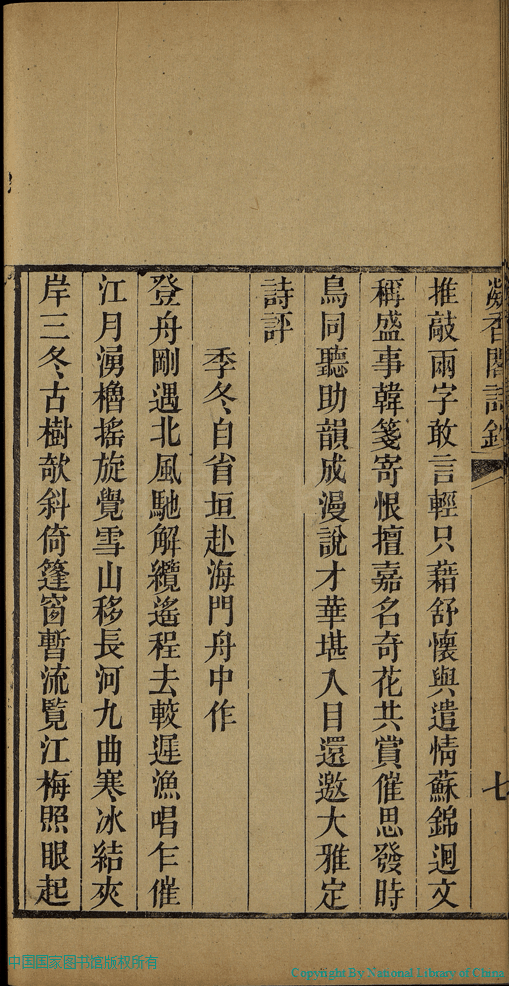 凝香閣詩鈔 七
推敲兩字敢言輕只藉舒懷與遣情蘇錦迴文
稱盛事韓箋寄恨擅嘉名奇花共賞催思發時
鳥同聽助韻成漫說才華堪入目還邀大雅定
詩評
季冬自省垣赴海門舟中作
登舟剛遇北風馳解纜遙程去較遲漁唱乍催
江月湧櫓搖旋覺雪山移長河九曲寒冰結夾
岸三冬古樹欹斜倚篷窗暫流覽江梅照眼起
中国国家图书馆版权所有
Copyright By National Library of China